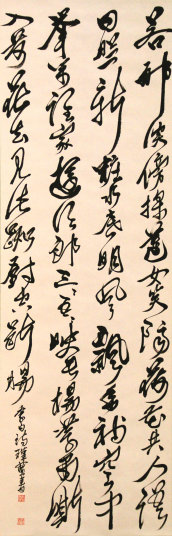 若耶溪傍採蓮女笑隔荷花共人語
日照新粧水底明風飄香袖空中
舉岸上誰家遊冶郎三三五五映垂楊紫騮嘶
入落花去見此踟躕空斷腸